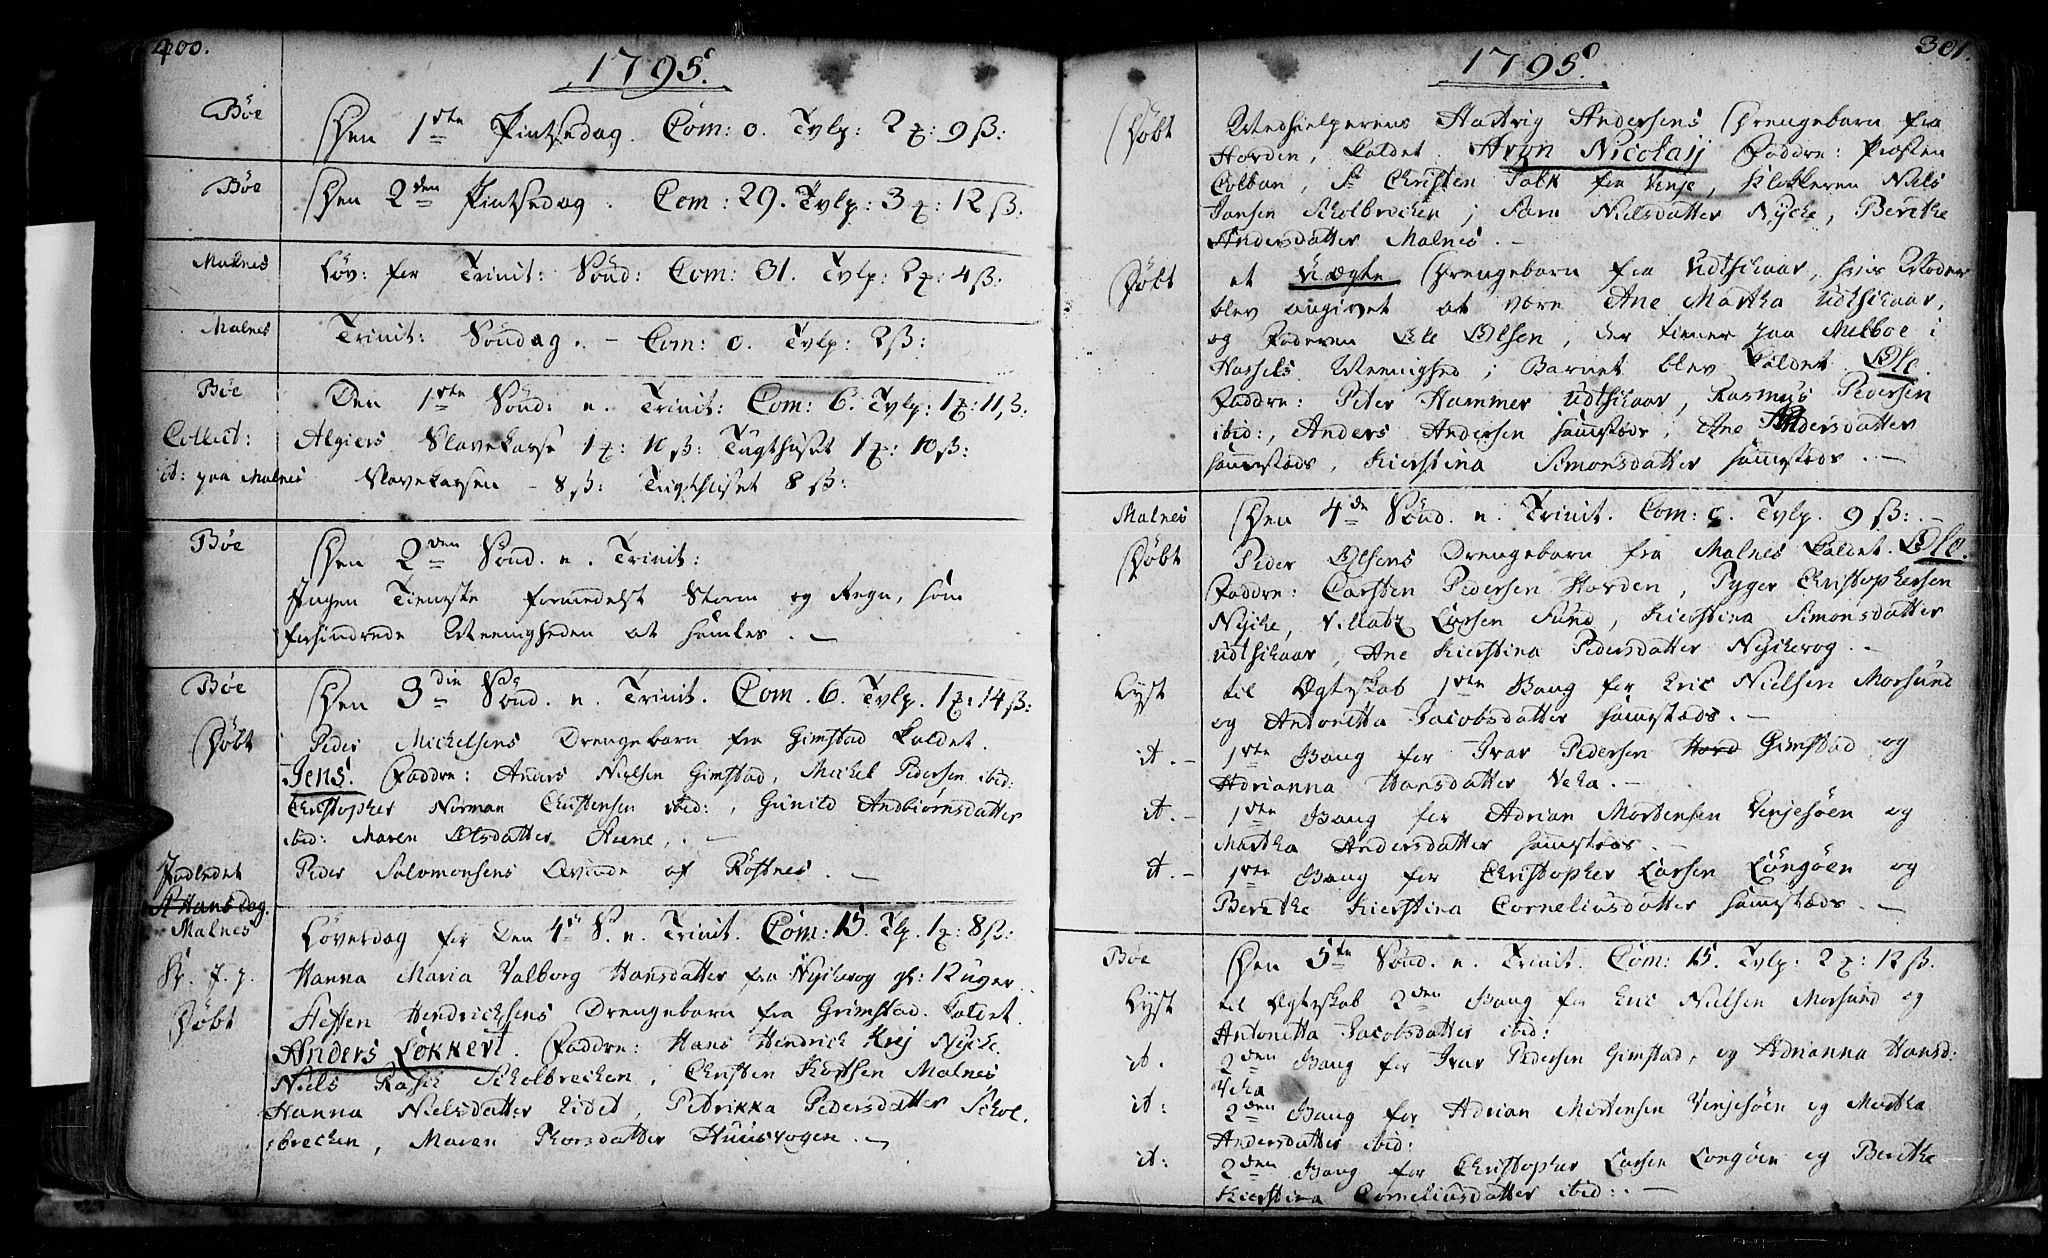 400.
1795.
Bøe Den 1ste Pintsedag. Com: 0. Tvlp: 2 ꝶ: 9 ß:
Bøe Den 2den Pintsedag. Com: 29. Tvlp: 3 ꝶ: 12 ß:
Malnes Løv: før Trinit: Sønd: Com: 31. Tvlp: 2 ꝶ: 4 ß:
Malnes Trinit: Søndag. – Com: 0. Tvlp: 2 ß:
Bøe Den 1ste Sønd: e. Trinit: Com: 6. Tvlp: 1 ꝶ: 11 ß:
Collect: Algiers Slavekasse 1 ꝶ: 10 ß: Tugthuset 1 ꝶ: 10 ß:
it: paa Malnes Slavekassen – 8 ß: Tugthuset 8 ß:
Bøe Den 2den Sønd. e. Trinit:
Ingen Tieneste formedelst Storm og Regn, som
forhindrede Meenigheden at samles. –
Bøe Den 3die Sønd. e. Trinit. Com. 6. Tvlp. 1 ꝶ: 14 ß:
Døbt Peder Michelsens Drengebarn fra Gimstad kaldet
Jens. Faddre: Anders Nielsen Gimstad, Michel Pedersen ibid:
Christopher Norman Christensen ibid:, Gunild Andbiørnsdatter
ibid: Maren Olsdatter Steene. –
Indledet Peder Salomonsens Qvinde af Røstnes. –
St Hans Dag.
Malnes Løverdag før den 4de S. e. Trinit. Com: 15. Tlp. 1 ꝶ: 8 ß:
Hanna Maria Valborg Hansdatter fra Nyckevog gl: 12 uger
Døbt Steffen Hendrichsens Drengebarn fra Grimstad kaldet
Anders Lokkert. Faddre: Hans Hendrich Krej Nycke
Niels Rasch Scholbrecken, Christen Kortsen Malnes
Hanna Nielsdatter Eidet, Petrikka Pedersdatter Schol-
brecken, Maren Thorsdatter Huusvogen. –
301.
1795.
Døbt Medhielperens Hartvig Andersens Drengebarn fra
Horden, kaldet Aron Nicolaij Faddre: Prosten
Colban, Sr Christen Falk fra Vinje, Klokkeren Niels
Jansen Scholbrecken; Sara Nielsdatter Nycke, Berethe
Andersdatter Malnes. –
Døbt et Uægte Drengebarn fra Udtschaar, hvis Moder
blev angivet at være Ane Martha Udtschaar,
og Faderen Ole Olsen, der tiener paa Melboe i
Hassels Meenighed; Barnet blev kaldet Ole.
Faddre: Peter Hammer Udtschaar, Rasmus Pedersen
ibid:, Anders Andersen sammestæds, Ane Andersdatter
sammestæds, Kierstina Simonsdatter sammestæds. –
Malnes Den 4de Sønd. e. Trinit. Com: 0. Tvlp. 9 ß: –
Døbt Peder Olsens Drengebarn fra Malnes kaldet Ole.
Faddre: Carsten Pedersen Horden, Pyger Christophersen
Nycke, Villatz Larsen Sund, Kierstina Simonsdatter
Udtschaar, Ane Kierstina Pedersdatter Nyckevog. –
Lyst til Ægteskab 1ste Gang for Eric Nielsen Morsund
og Antonetta Jacobsdatter sammestæds. –
it. – 1ste Gang for Ivar Pedersen Hord Gimstad og
Adrianna Hansdatter Veka. –
it. – 1ste Gang for Adrian Mortensen Vinjesøen og
Martha Andersdatter sammestæds. –
it. – 1ste Gang for Christopher Larsen Longøen og
Berethe Kierstina Corneliusdatter sammestæds. –
Bøe Den 5te Sønd. e. Trinit. Com: 15. Tvlp: 2 ꝶ: 12 ß.
Lyst til Ægteskab 2den Gang for Eric Nielsen Morsund og
Antonetta Jacobsdatter ibid:
it. 2den Gang for Ivar Pedersen Gimstad, og Adrianna Hansd:
Veka
it: 2den Gang for Adrian Mortensen Vinjesøen og Martha
Andersdatter ibid:
it: 2den Gang for Christopher Larsen Longøen og Berethe
Kierstina Corneliusdatter ibid: –